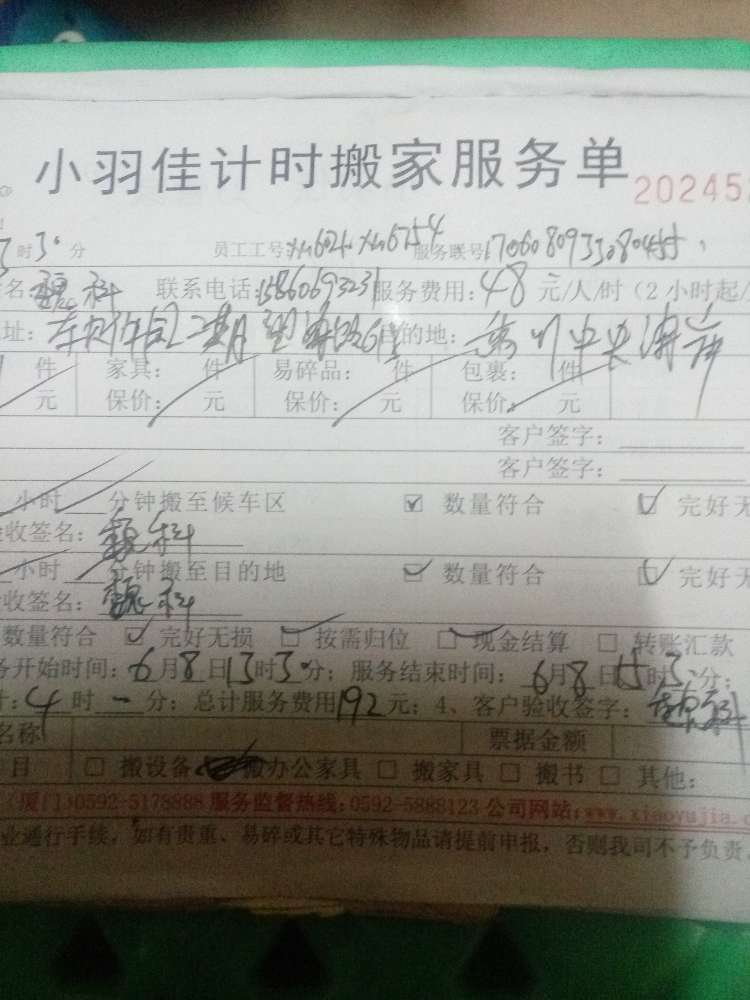 小羽佳计时搬家服务单 202452
3时30分 员工工号: xm6021 xm6754 服务联号: 1706080933080455
名: 魏科 联系电话: 15860693231 服务费用: 48 元/人/时(2小时起/
址: 目的地: 中央
件 家具: 件 易碎品: 件 包裹: 件
元 保价: 元 保价: 元 保价: 元
客户签字:
客户签字:
小时 分钟搬至候车区 ☑ 数量符合 ☑ 完好无
收签名: 魏科
小时 分钟搬至目的地 ☑ 数量符合 ☑ 完好无
收签名: 魏科
数量符合 ☑ 完好无损 ☑ 按需归位 ☑ 现金结算 □ 转账汇款
务开始时间: 6月8日13时30分; 服务结束时间: 6月8日15时30分;
计: 4时一分; 总计服务费用192元; 4、客户验收签字: 魏科
名称 票据金额
目 □ 搬设备 搬办公家具 □ 搬家具 □ 搬书 □ 其他:
(厦门)0592-5178888 服务监督热线:0592-5888123 公司网站:www.xiaoyujia.c
业通行手续,如有贵重、易碎或其它特殊物品请提前申报,否则我司不予负责。